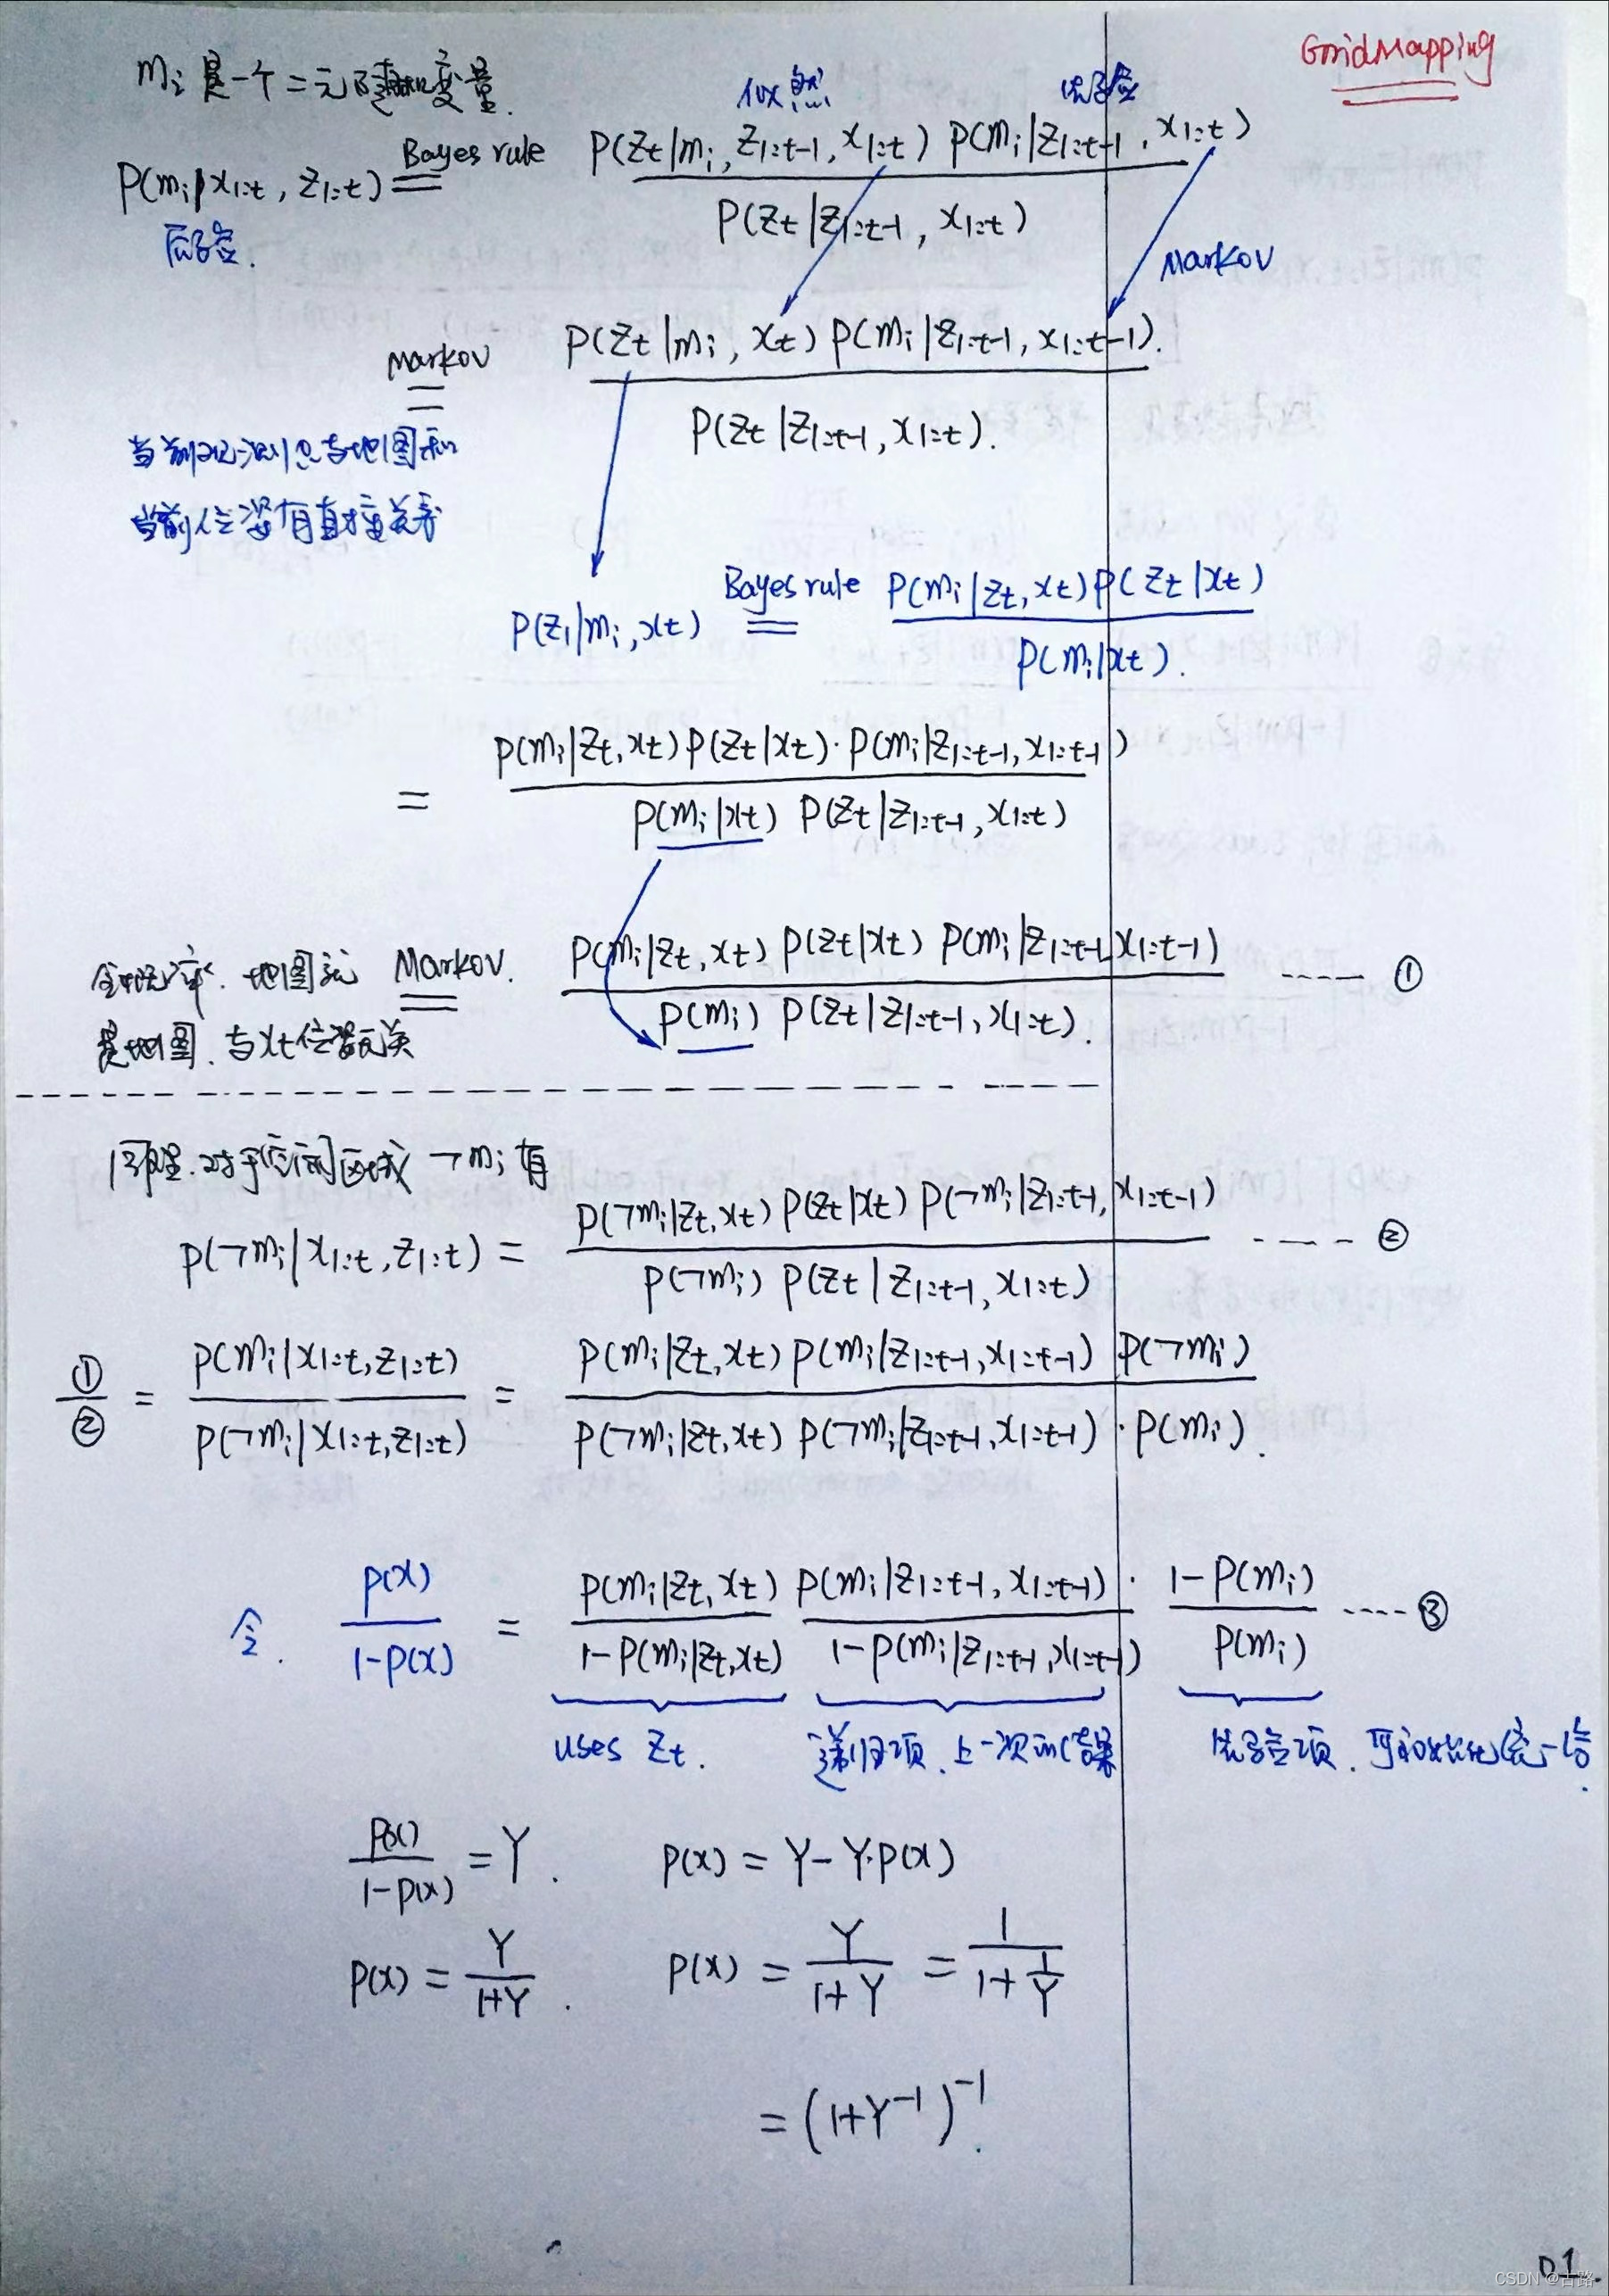 GridMapping
mi 是一个二元随机变量.
似然 先验
P(mi|x1:t, z1:t) Bayes rule = P(zt|mi, z1:t-1, x1:t) P(mi|z1:t-1, x1:t) / P(zt|z1:t-1, x1:t)
后验.
Markov
Markov = P(zt|mi, xt) P(mi|z1:t-1, x1:t-1). / P(zt|z1:t-1, x1:t).
当前观测只与地图和
当前位姿有直接关系
P(z1|mi, xt) Bayes rule = P(mi|zt, xt) P(zt|xt) / P(mi|xt).
= P(mi|zt, xt) P(zt|xt) · P(mi|z1:t-1, x1:t-1) / P(mi|xt) P(zt|z1:t-1, x1:t)
全概率. 地图就 Markov. = P(mi|zt, xt) P(zt|xt) P(mi|z1:t-1, x1:t-1) / P(mi) P(zt|z1:t-1, x1:t). ---- ①
是地图. 与xt位姿无关
同理. 对于空闲区域 ¬mi 有
P(¬mi|x1:t, z1:t) = P(¬mi|zt, xt) P(zt|xt) P(¬mi|z1:t-1, x1:t-1) / P(¬mi) P(zt|z1:t-1, x1:t) ---- ②
①/② = P(mi|x1:t, z1:t) / P(¬mi|x1:t, z1:t) = P(mi|zt, xt) P(mi|z1:t-1, x1:t-1) P(¬mi) / P(¬mi|zt, xt) P(¬mi|z1:t-1, x1:t-1) · P(mi).
令. P(x) / 1-P(x) = P(mi|zt, xt) / 1-P(mi|zt, xt) P(mi|z1:t-1, x1:t-1) / 1-P(mi|z1:t-1, x1:t-1) · 1-P(mi) / P(mi) ---- ③
uses zt. 递归项. 上一次的结果 先验项.
P(x) / 1-P(x) = Y. P(x) = Y - Y·P(x)
P(x) = Y / 1+Y. P(x) = Y / 1+Y = 1 / 1+ 1/Y
= (1+Y⁻¹)⁻¹.
01.
CSDN @古路